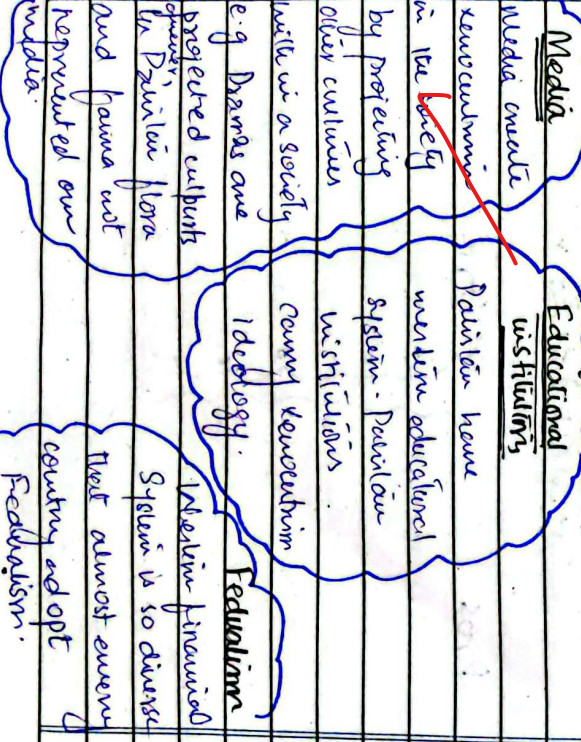 Media
Media create
xenocentrism
in the society
by projecting
other cultures
with in a society
e.g Dramas are
projected culprits
In Pakistan flora
and fauna not
represented our
media.
Educational
institutions
Pakistan have
western educational
system. Pakistan
institutions
carry xenocentrism
ideology.
Fedralism
Western financial
System is so diverse
that almost every
country adopt
Fedralism.